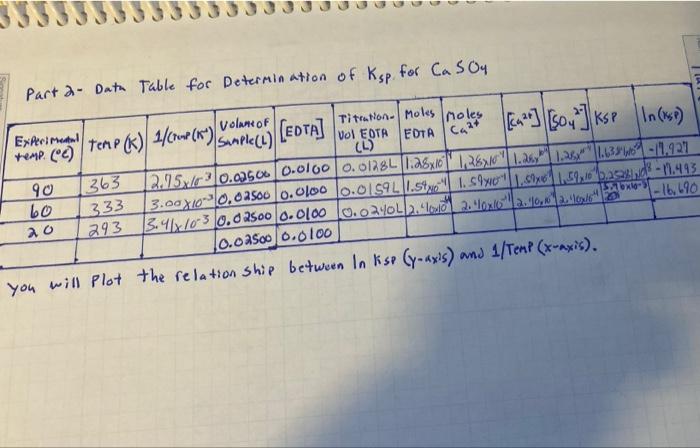 Part 2- Data Table for Determination of Ksp for CaSO4
Experimental temp. (°C) Temp (K) 1/(Temp (K)) Volume of Sample(L) [EDTA] Titration- Vol EDTA (L) Moles EDTA moles Ca2+ [Ca2+] [SO4 2-] Ksp ln(Ksp)
90 363 2.75x10-3 0.02500 0.0100 0.0128L 1.28x10-4 1.28x10-4 1.28x10-4 1.28x10-4 1.638x10-8 -17.927
60 333 3.00x10-3 0.02500 0.0100 0.0159L 1.59x10-4 1.59x10-4 1.59x10-4 1.59x10-4 2.5281x10-8 -17.493
20 293 3.41x10-3 0.02500 0.0100 0.0240L 2.40x10-4 2.40x10-4 2.40x10-4 2.40x10-4 -16.690
0.02500 0.0100
You will Plot the relationship between ln Ksp (y-axis) and 1/Temp (x-axis).